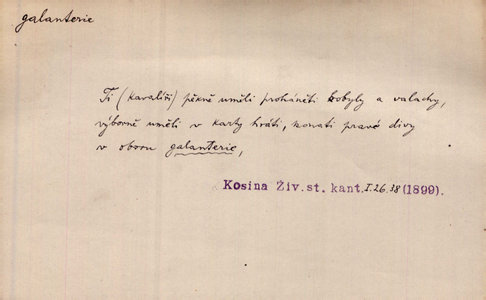 galanterie
Ti (kavalíři) pěkně uměli proháněti kobyly a valachy,
výborně uměli v karty hráti, konati pravé divy
v oboru galanterie,
Kosina Živ. st. kant. I. 26. 38 (1899).